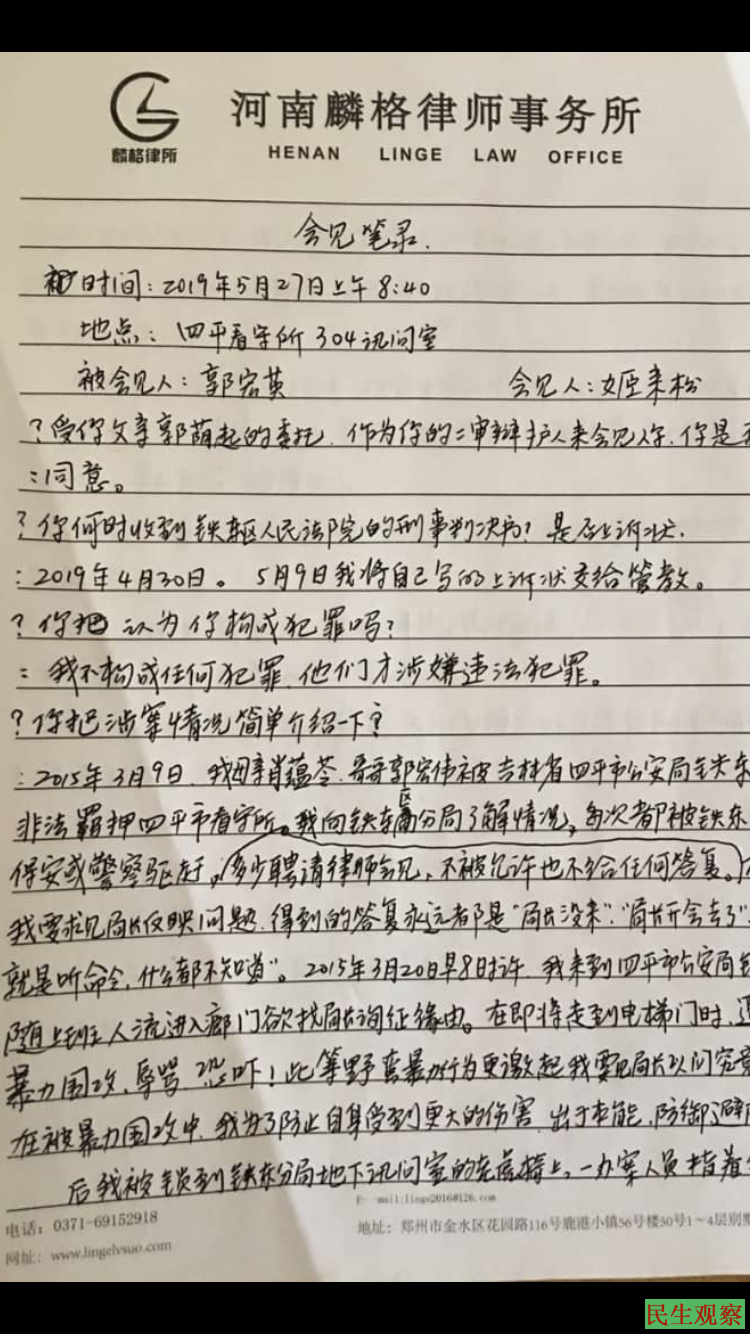 麟格律所
河南麟格律师事务所
HENAN LINGE LAW OFFICE
会见笔录.
时间：2019年5月27日上午8:40
地点：四平看守所304讯问室
被会见人：郭宏英 会见人：姬来松
？受你父亲郭荫起的委托，作为你的二审辩护人来会见你，你是否
：同意。
？你何时收到铁东区人民法院的刑事判决书？是否上诉状.
：2019年4月30日。5月9日我将自己写的上诉状交给管教。
？你 认为你构成犯罪吗？
：我不构成任何犯罪，他们才涉嫌违法犯罪。
？你把涉案情况简单介绍一下？
：2015年3月9日，我母亲肖蕴苓、哥哥郭宏伟被吉林省四平市公安局铁东
非法羁押四平市看守所。我向铁东区分局了解情况，每次都被铁东
保安或警察驱赶，多少聘请律师会见，不被允许也不给任何答复。
我要求见局长反映问题，得到的答复永远都是“局长没来”、“局长开会去了”、
就是听命令，什么都不知道”。2015年3月20日早8时许，我来到四平市公安局铁
随上班人流进入廊门欲找局长询征缘由。在即将走到电梯门时，遭
暴力围攻、辱骂、恐吓！此等野蛮暴力行为更激起我要见局长以问究竟
在被暴力围攻中，我为了防止自身受到更大的伤害，出于本能，防御
后我被锁到铁东分局地下讯问室的老虎椅上，一办案人员指着
E--mail:linge2016@126.com
电话：0371-69152918
地址：郑州市金水区花园路116号鹿港小镇56号楼50号1~4层别墅
网址：www.lingelvsuo.com
民生观察